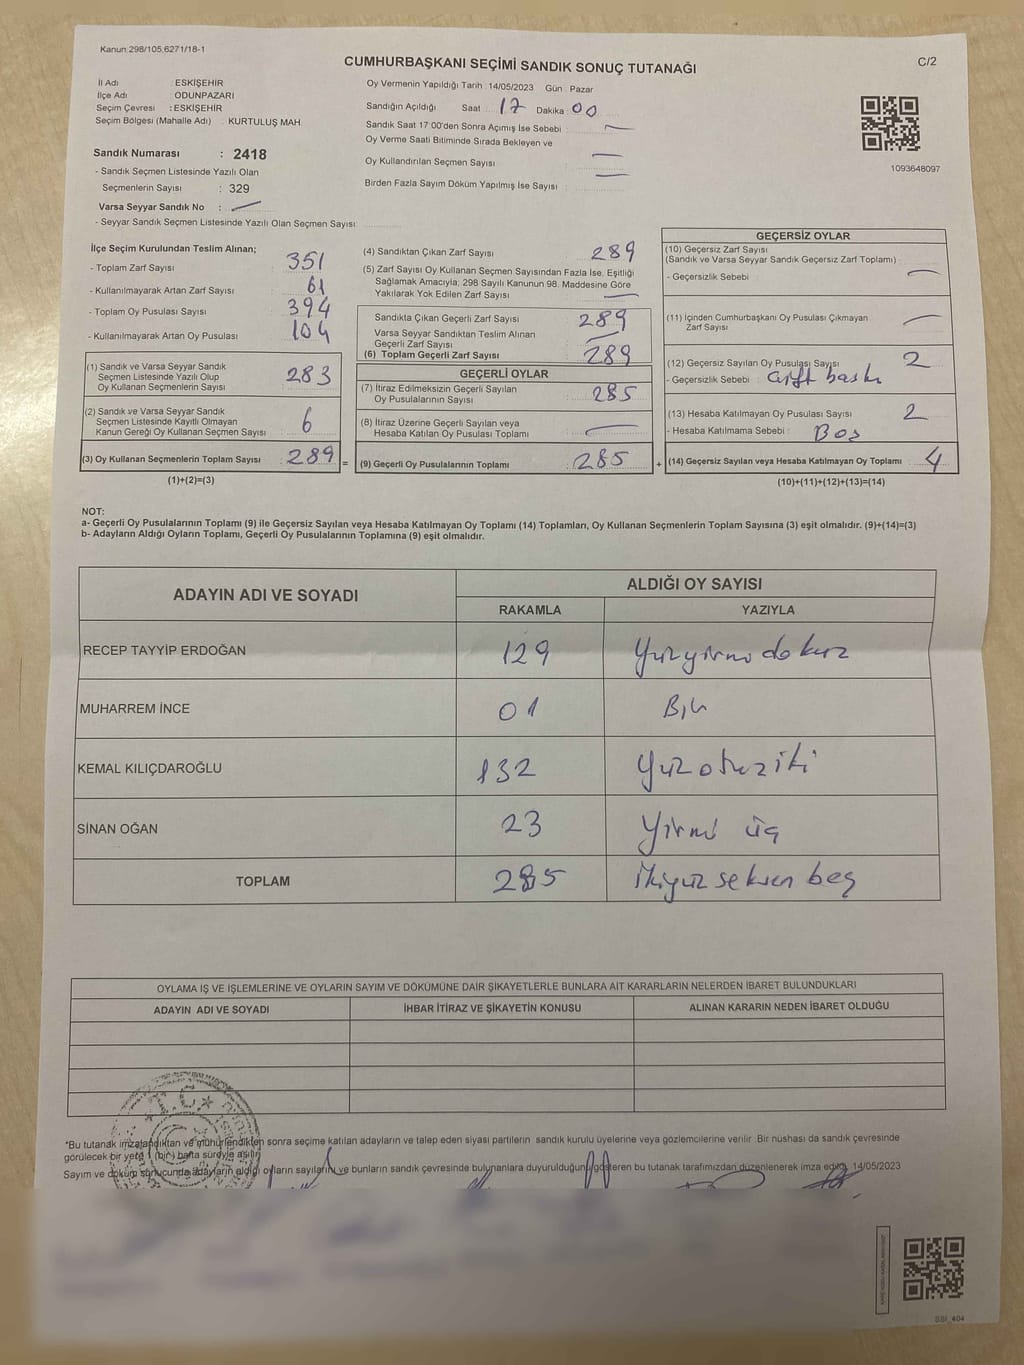 Kanun:298/105,6271/18-1
C/2
CUMHURBAŞKANI SEÇİMİ SANDIK SONUÇ TUTANAĞI
İl Adı : ESKİŞEHİR
İlçe Adı : ODUNPAZARI
Seçim Çevresi : ESKİŞEHİR
Seçim Bölgesi (Mahalle Adı) : KURTULUŞ MAH.
Sandık Numarası : 2418
- Sandık Seçmen Listesinde Yazılı Olan
Seçmenlerin Sayısı : 329
Varsa Seyyar Sandık No :
- Seyyar Sandık Seçmen Listesinde Yazılı Olan Seçmen Sayısı:
Oy Vermenin Yapıldığı Tarih : 14/05/2023 Gün : Pazar
Sandığın Açıldığı Saat : 17 Dakika : 00
Sandık Saat 17:00'den Sonra Açımış İse Sebebi :
Oy Verme Saati Bitiminde Sırada Bekleyen ve
Oy Kullandırılan Seçmen Sayısı :
Birden Fazla Sayım Döküm Yapılmış İse Sayısı :
1093648097
İlçe Seçim Kurulundan Teslim Alınan;
- Toplam Zarf Sayısı : 351
- Kullanılmayarak Artan Zarf Sayısı : 61
- Toplam Oy Pusulası Sayısı : 394
- Kullanılmayarak Artan Oy Pusulası : 104
(1) Sandık ve Varsa Seyyar Sandık
Seçmen Listesinde Yazılı Olup
Oy Kullanan Seçmenlerin Sayısı : 283
(2) Sandık ve Varsa Seyyar Sandık
Seçmen Listesinde Kayıtlı Olmayan
Kanun Gereği Oy Kullanan Seçmen Sayısı : 6
(3) Oy Kullanan Seçmenlerin Toplam Sayısı : 289 =
(1)+(2)=(3)
(4) Sandıktan Çıkan Zarf Sayısı : 289
(5) Zarf Sayısı Oy Kullanan Seçmen Sayısından Fazla İse, Eşitliği
Sağlamak Amacıyla; 298 Sayılı Kanunun 98. Maddesine Göre
Yakılarak Yok Edilen Zarf Sayısı :
Sandıkta Çıkan Geçerli Zarf Sayısı : 289
Varsa Seyyar Sandıktan Teslim Alınan
Geçerli Zarf Sayısı :
(6) Toplam Geçerli Zarf Sayısı : 289
GEÇERLİ OYLAR
(7) İtiraz Edilmeksizin Geçerli Sayılan
Oy Pusulalarının Sayısı : 285
(8) İtiraz Üzerine Geçerli Sayılan veya
Hesaba Katılan Oy Pusulası Toplamı :
(9) Geçerli Oy Pusulalarının Toplamı : 285 +
GEÇERSİZ OYLAR
(10) Geçersiz Zarf Sayısı
(Sandık ve Varsa Seyyar Sandık Geçersiz Zarf Toplamı) :
- Geçersizlik Sebebi :
(11) İçinden Cumhurbaşkanı Oy Pusulası Çıkmayan
Zarf Sayısı :
(12) Geçersiz Sayılan Oy Pusulası Sayısı : 2
- Geçersizlik Sebebi : Çift baskı
(13) Hesaba Katılmayan Oy Pusulası Sayısı : 2
- Hesaba Katılmama Sebebi : Boş
(14) Geçersiz Sayılan veya Hesaba Katılmayan Oy Toplamı : 4
(10)+(11)+(12)+(13)=(14)
NOT:
a- Geçerli Oy Pusulalarının Toplamı (9) ile Geçersiz Sayılan veya Hesaba Katılmayan Oy Toplamı (14) Toplamları, Oy Kullanan Seçmenlerin Toplam Sayısına (3) eşit olmalıdır. (9)+(14)=(3)
b- Adayların Aldığı Oyların Toplamı, Geçerli Oy Pusulalarının Toplamına (9) eşit olmalıdır.
ADAYIN ADI VE SOYADI ALDIĞI OY SAYISI
RAKAMLA YAZIYLA
RECEP TAYYİP ERDOĞAN 129 Yüzyirmi dokuz
MUHARREM İNCE 01 Bir
KEMAL KILIÇDAROĞLU 132 Yüzotuziki
SİNAN OĞAN 23 Yirmi üç
TOPLAM 285 İkiyüz seksen beş
OYLAMA İŞ VE İŞLEMLERİNE VE OYLARIN SAYIM VE DÖKÜMÜNE DAİR ŞİKAYETLERLE BUNLARA AİT KARARLARIN NELERDEN İBARET BULUNDUKLARI
ADAYIN ADI VE SOYADI İHBAR İTİRAZ VE ŞİKAYETİN KONUSU ALINAN KARARIN NEDEN İBARET OLDUĞU
T.C.
*Bu tutanak imzalandıktan ve mühürlendikten sonra seçime katılan adayların ve talep eden siyasi partilerin sandık kurulu üyelerine veya gözlemcilerine verilir. Bir nüshası da sandık çevresinde
görülecek bir yere 1 (bir) hafta süreyle asılır.
Sayım ve döküm sonucunda adayların aldığı oyların sayılarını ve bunların sandık çevresinde bulunanlara duyurulduğunu gösteren bu tutanak tarafımızdan düzenlenerek imza edildi. 14/05/2023
SSI_404